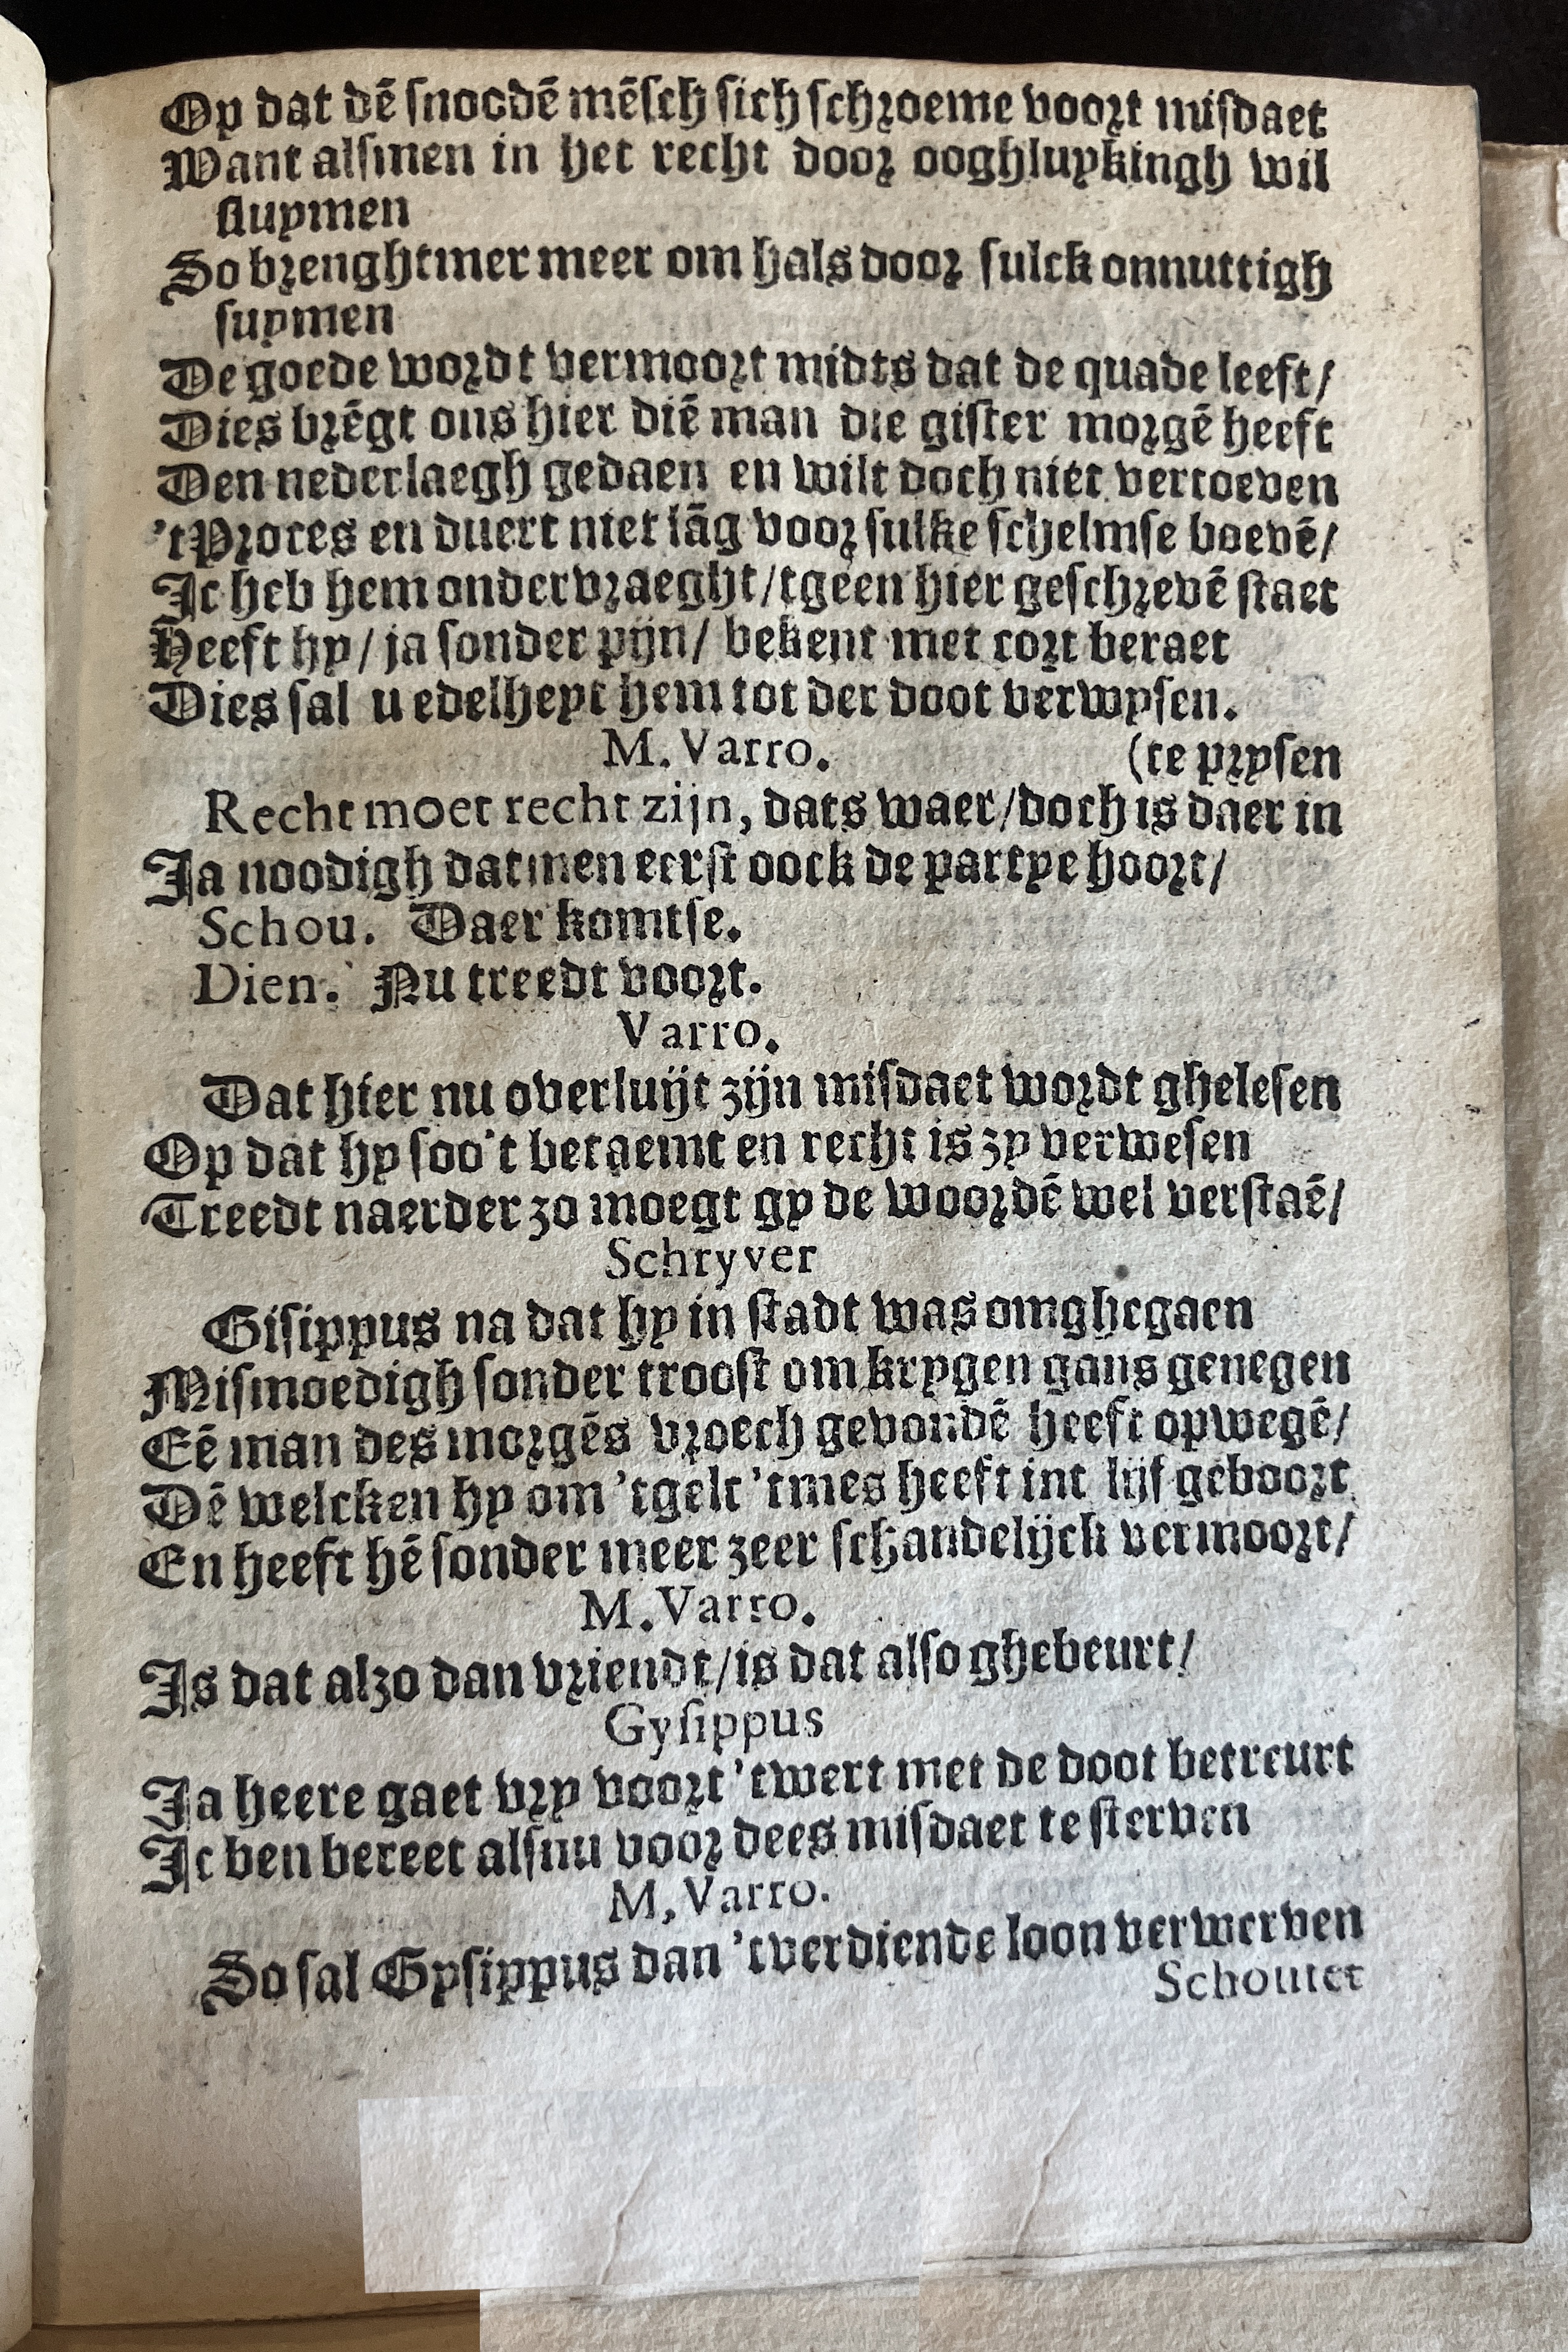 Op dat dē snoodē mēsch sich schroeme voort misdaet
Want alsmen in het recht door ooghluykingh wil
sluymen
So brenghtmer meer om hals door sulck onnuttigh
suymen
De goede wordt vermoort midts dat de quade leeft/
Dies brēgt ons hier diē man die gister morgē heeft
Den nederlaegh gedaen en wilt doch niet vertoeven
'tProces en duert niet lāg voor sulke schelmse boevē/
Ic heb hem ondervraeght/tgeen hier geschrevē staet
Heeft hy/ ja sonder pijn/ bekent met cort beraet
Dies sal u edelheyt hem tot der doot verwysen.
M. Varro.
(te prysen
Recht moet recht zijn, dats waer/doch is daer in
Ja noodigh datmen eerst oock de partye hoort/
Schou. Daer komtse.
Dien. Nu treedt voort.
Varro.
Dat hier nu overluijt zijn misdaet wordt ghelesen
Op dat hy soo't betaemt en recht is zy verwesen
Treedt naerder zo moegt gy de woordē wel verstaē/
Schryver
Gisippus na dat hy in stadt was omghegaen
Mismoedigh sonder troost om krygen gans genegen
Eē man des morgēs vroech gevondē heeft opwegē/
Dē welcken hy om 'tgelt 'tmes heeft int lijf geboort
En heeft hē sonder meer zeer schandelijck vermoort/
M. Varro.
Is dat alzo dan vriendt/is dat also ghebeurt/
Gysippus
Ja heere gaet vry voort 'twert met de doot betreurt
Ic ben bereet alsnu voor dees misdaet te sterven
M, Varro.
So sal Gysippus dan 'tverdiende loon verwerven
Schoutet